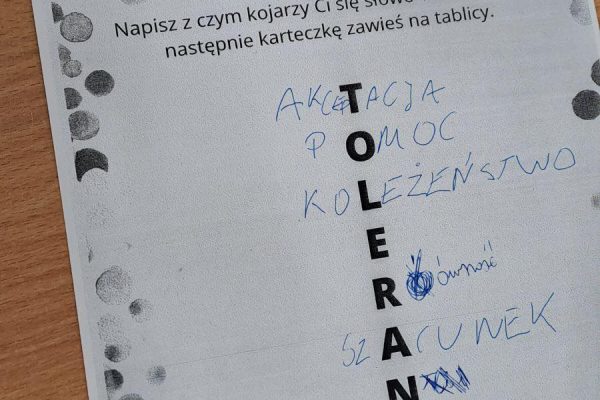 Napisz z czym kojarzy Ci się słowo
następnie karteczkę zawieś na tablicy.
AKCEPTACJA
POMOC
KOLEŻEŃSTWO
E
Równość
SZACUNEK
N